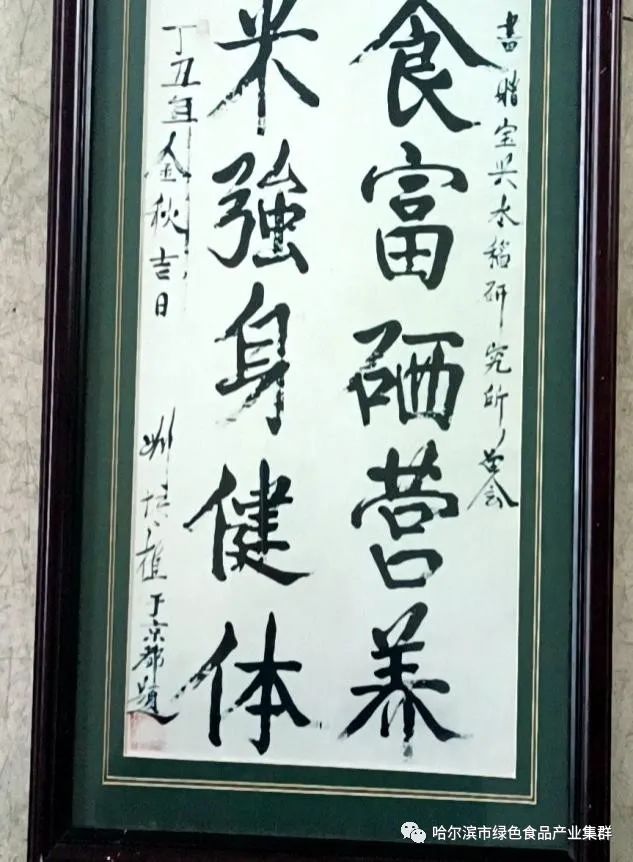 書贈宝兴水稻研究所
食富硒营养
米強身健体
丁丑年金秋吉日
于京都題
哈尔滨市绿色食品产业集群